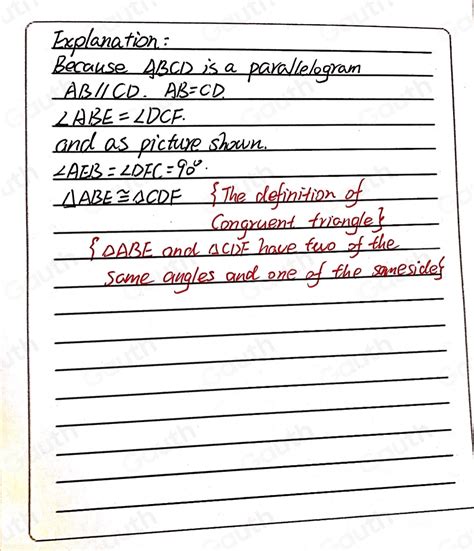 Explanation:
Because ABCD is a parallelogram
AB//CD. AB=CD.
∠ABE=∠DCF.
and as picture shown.
∠AEB=∠DFC=90°.
△ABE≅△CDF {The definition of
Congruent triangle}
{△ABE and △CDF have two of the
same angles and one of the same side}
Gauth